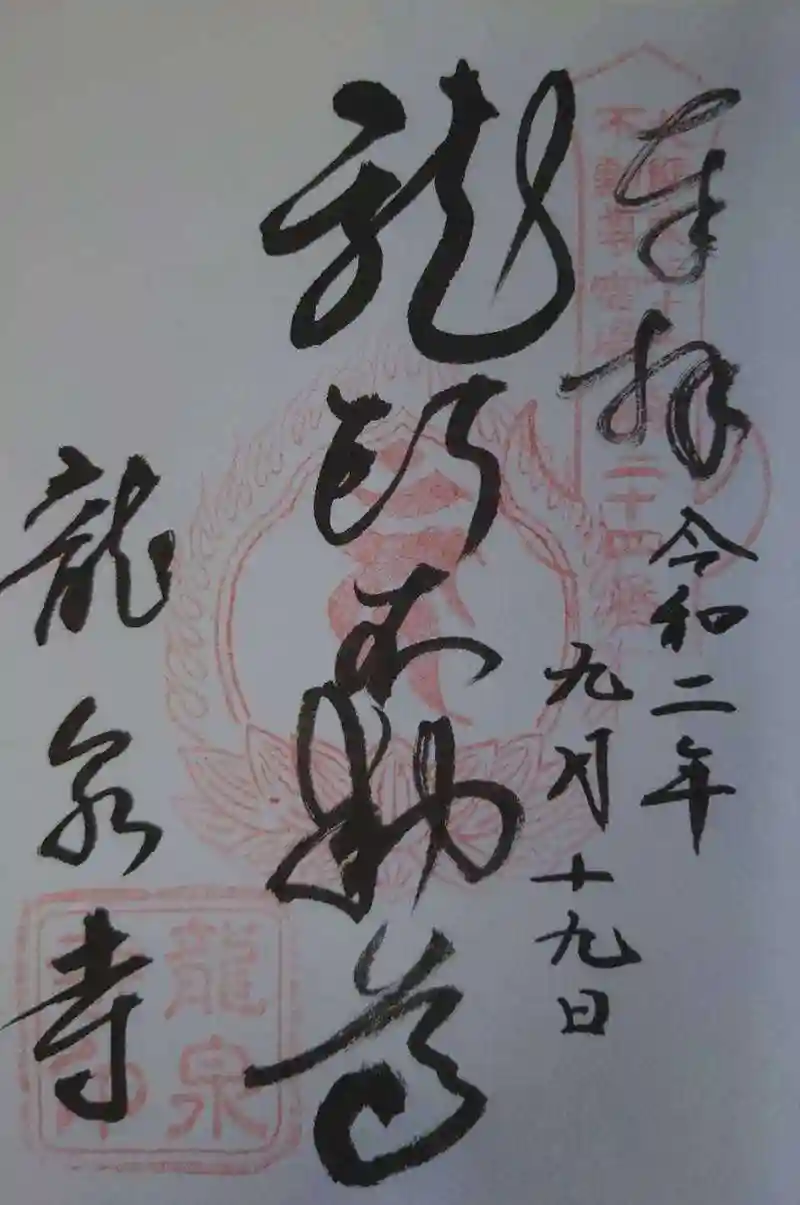 奉拝
令和二年
九月十九日
龍頭不動尊
龍泉寺
不動尊霊場
二十四番
龍泉寺印